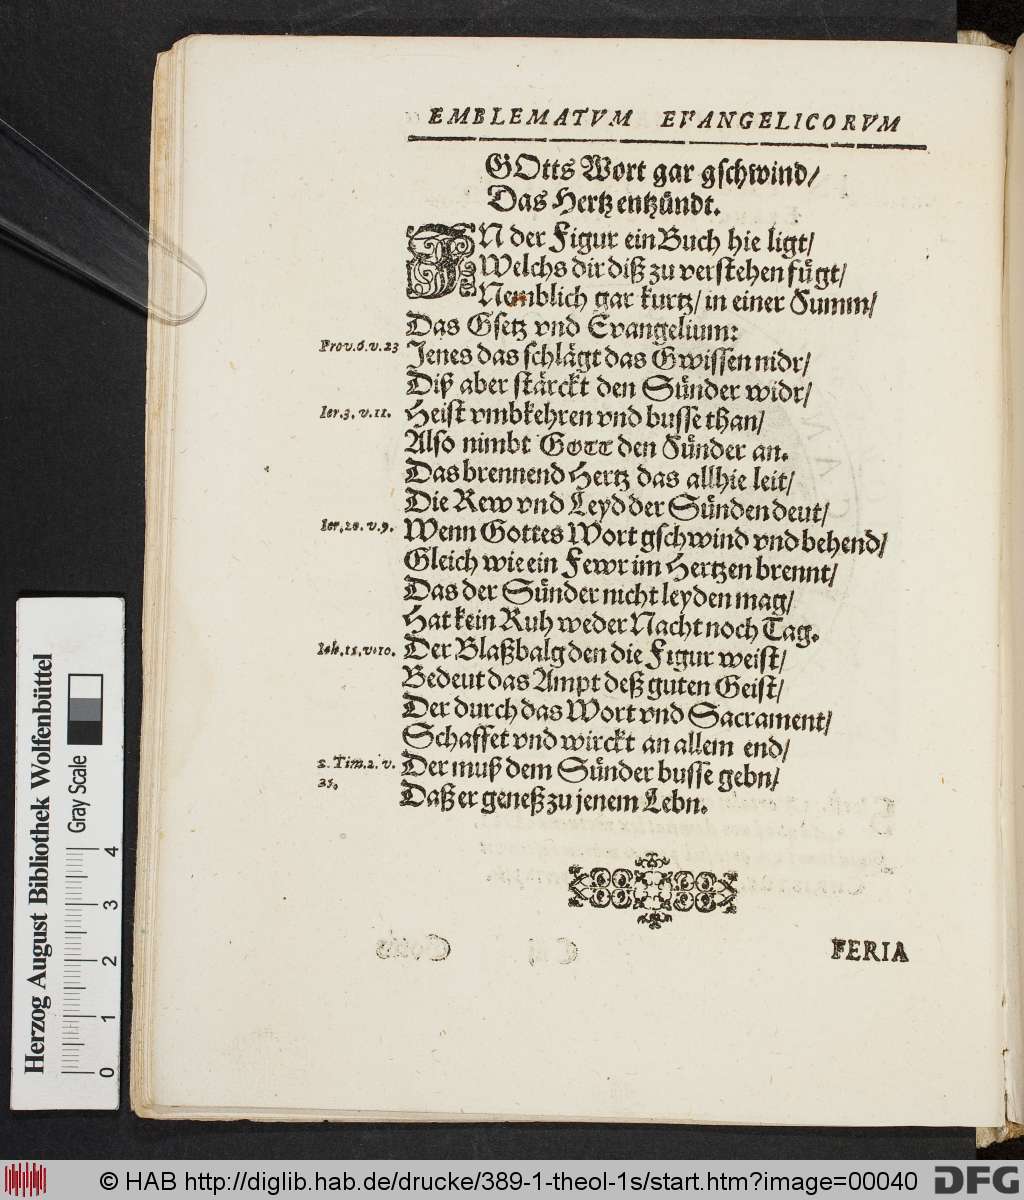 EMBLEMATVM EVANGELICORVM
GOtts Wort gar gschwind/
Das Hertz entzündt.
IN der Figur ein Buch hie ligt/
Welchs dir diß zu verstehen fügt/
Nemblich gar kurtz/ in einer Summ/
Das Gsetz vnd Evangelium:
Prov. 6. v. 23
Jenes das schlägt das Gwissen nidr/
Diß aber stärckt den Sünder widr/
Ier. 3. v. 11.
Heist vmbkehren vnd busse than/
Also nimbt GOTT den Sünder an.
Das brennend Hertz das allhie leit/
Die Rew vnd Leyd der Sünden deut/
Ier. 20. v. 9.
Wenn Gottes Wort gschwind vnd behend/
Gleich wie ein Fewr im Hertzen brennt/
Das der Sünder nicht leyden mag/
Hat kein Ruh weder Nacht noch Tag.
v. 10.
Der Blaßbalg den die Figur weist/
Bedeut das Ampt deß guten Geist/
Der durch das Wort vnd Sacrament/
Schaffet vnd wirckt an allem end/
2. Tim. 2. v.
25.
Der muß dem Sünder busse gebn/
Daß er geneß zu jenem Lebn.
FERIA
Herzog August Bibliothek Wolfenbüttel
Gray Scale
0 1 2 3 4
© HAB http://diglib.hab.de/drucke/389-1-theol-1s/start.htm?image=00040
DFG